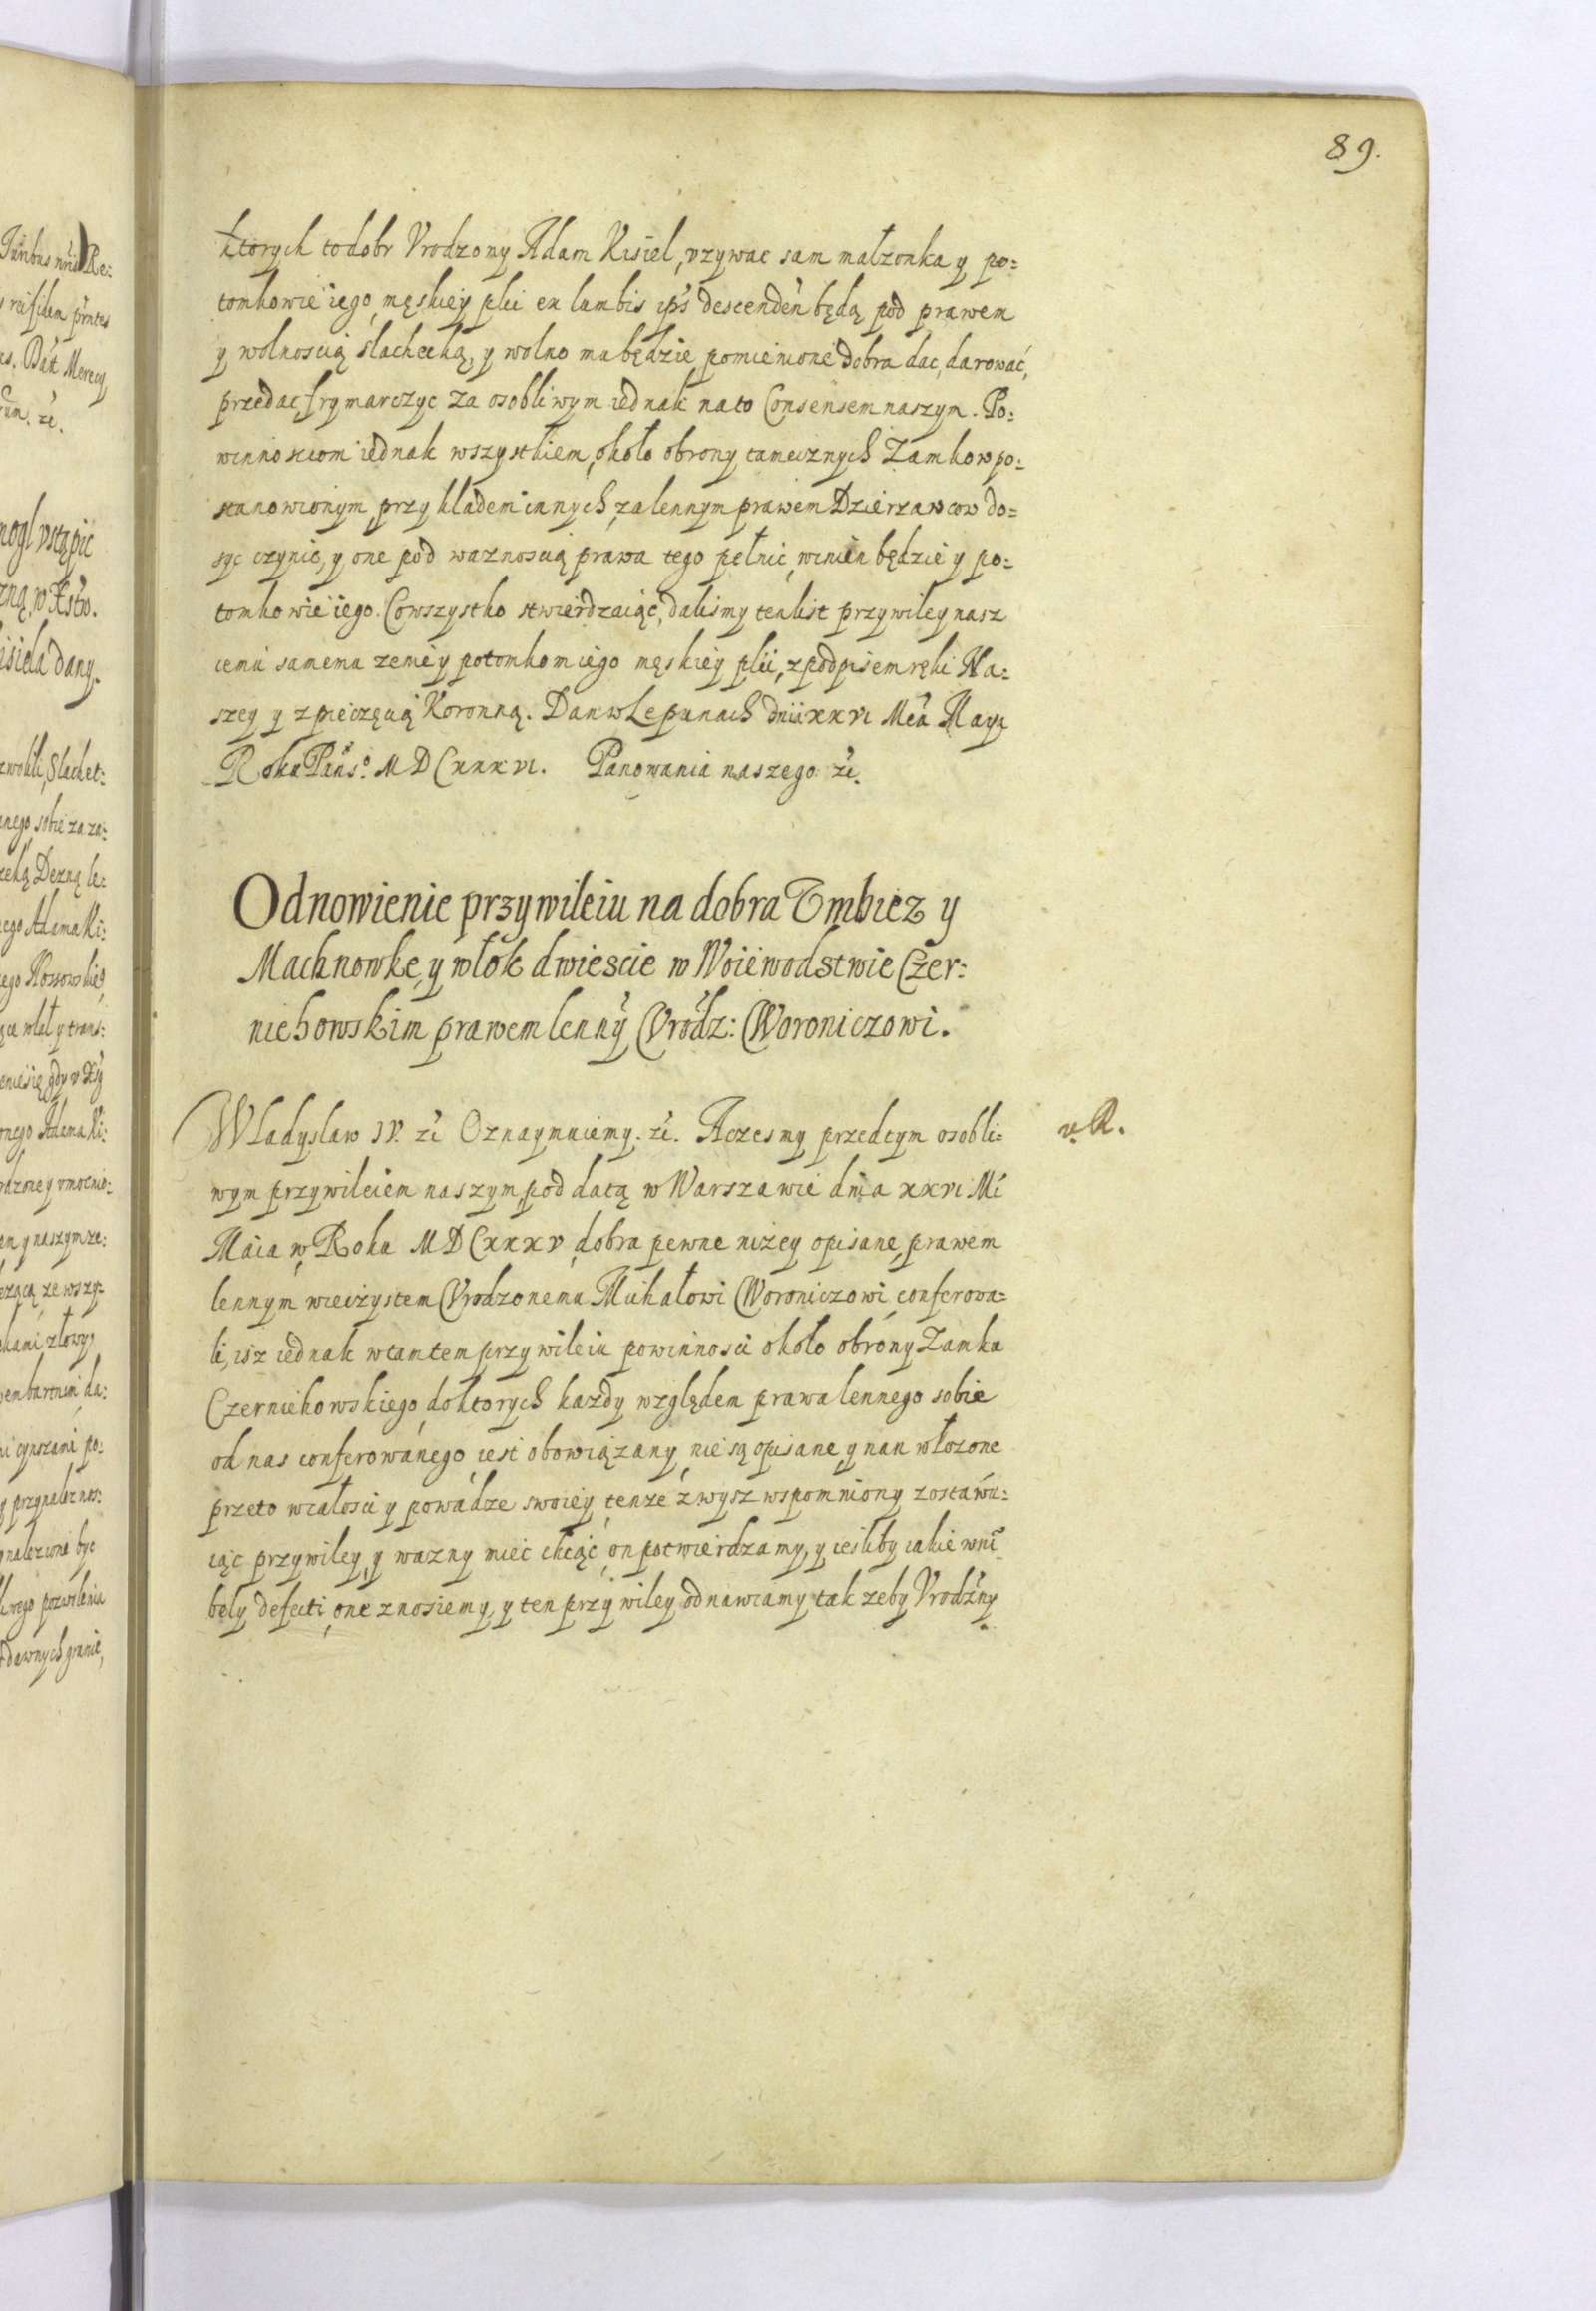 89.
ktorych to dobr Vrodzony Adam Kisiel, vzywac sam małzonka y po=
tomkowie iego, męskiey płci ex lumbis ips descenden będą pod prawem
y wolnoscią slachecką, y wolno mu będzie pomienione dobra dac, darować,
przedac frymarczyc za osobliwym iednak na to Consensem naszym. Po=
winnosciom iednak wszystkiem, około obrony tamecznych Zamkow po=
stanowionym, przykładem innych, za lennym prawem Dzierzawcow do=
syc czynic, y one pod waznoscią prawa tego pełnic, winien będzie y po=
tomkowie iego. Co wszystko stwierdzaiąc, dalismy ten list przywiley nasz
iemu samemu zenie y potomkom iego męskiey płci, z podpisem ręki Na=
szey y z pieczęcią Koronną. Dan w Lepunach dnia xxvi Mca Maya
Roku Pans°. MDCxxxvi. Panowania naszego zc.
Odnowienie przywileiu na dobra Tmbiez y
Machnowkę, y włok dwiescie w Woiewodstwie Czer=
niehowskim prawem lenny Vrodz: Woroniczowi.
Wladyslaw IV. zc Oznaymuiemy. zc. Aczesmy przedtym osobli=
wym przywileiem naszym, pod datą w Warszawie dnia xxvi Mc
Maia w Roku MDCxxxv, dobra pewne nizey opisane, prawem
lennym wieczystem Vrodzonemu Michałowi Woroniczowi conferowa=
li, isz iednak w tamtem przywileiu powinnosci około obrony Zamku
Czerniehowskiego, do ktorych kazdy względem prawa lennego sobie
od nas conferowanego iest obowiązany, nie są opisane, y nan włozone
przeto w całosci y powadze swoiey tenze zwysz wspomniony zostawu=
iąc przywiley, y wazny miec chcąc, on potwierdzamy, y iesliby iakie w ni
beły defecti, one znosiemy, y ten przywiley odnawiamy tak zeby Vrodzny
v. R.